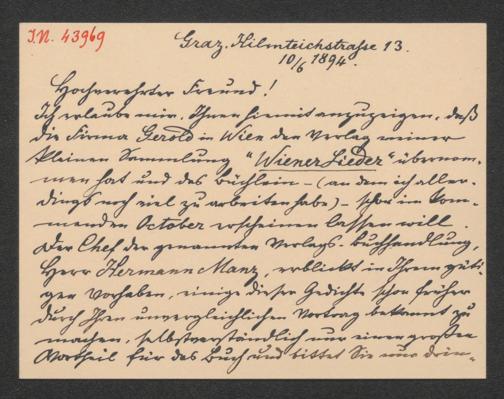 I.N. 43969
Graz, Hilmteichstrasse 13.
10/6 1894.
Hochverehrter Freund!
Ich erlaube mir, Ihnen hiemit anzuzeigen, daß
die Firma Gerold in Wien den Verlag meiner
kleinen Sammlung "Wiener Lieder" übernom-
men hat und das Büchlein – (an dem ich aller-
dings noch viel zu arbeiten habe) – schon im kom-
menden October erscheinen lassen will.
Der Chef der genannten Verlags-Buchhandlung,
Herr Hermann Manz, erblickt in Ihrem güti-
gen Vorhaben, einige dieser Gedichte schon früher
durch Ihren unvergleichlichen Vortrag bekannt zu
machen, selbstverständlich nur einen großen
Vortheil für das Buch und bittet Sie nun drin-